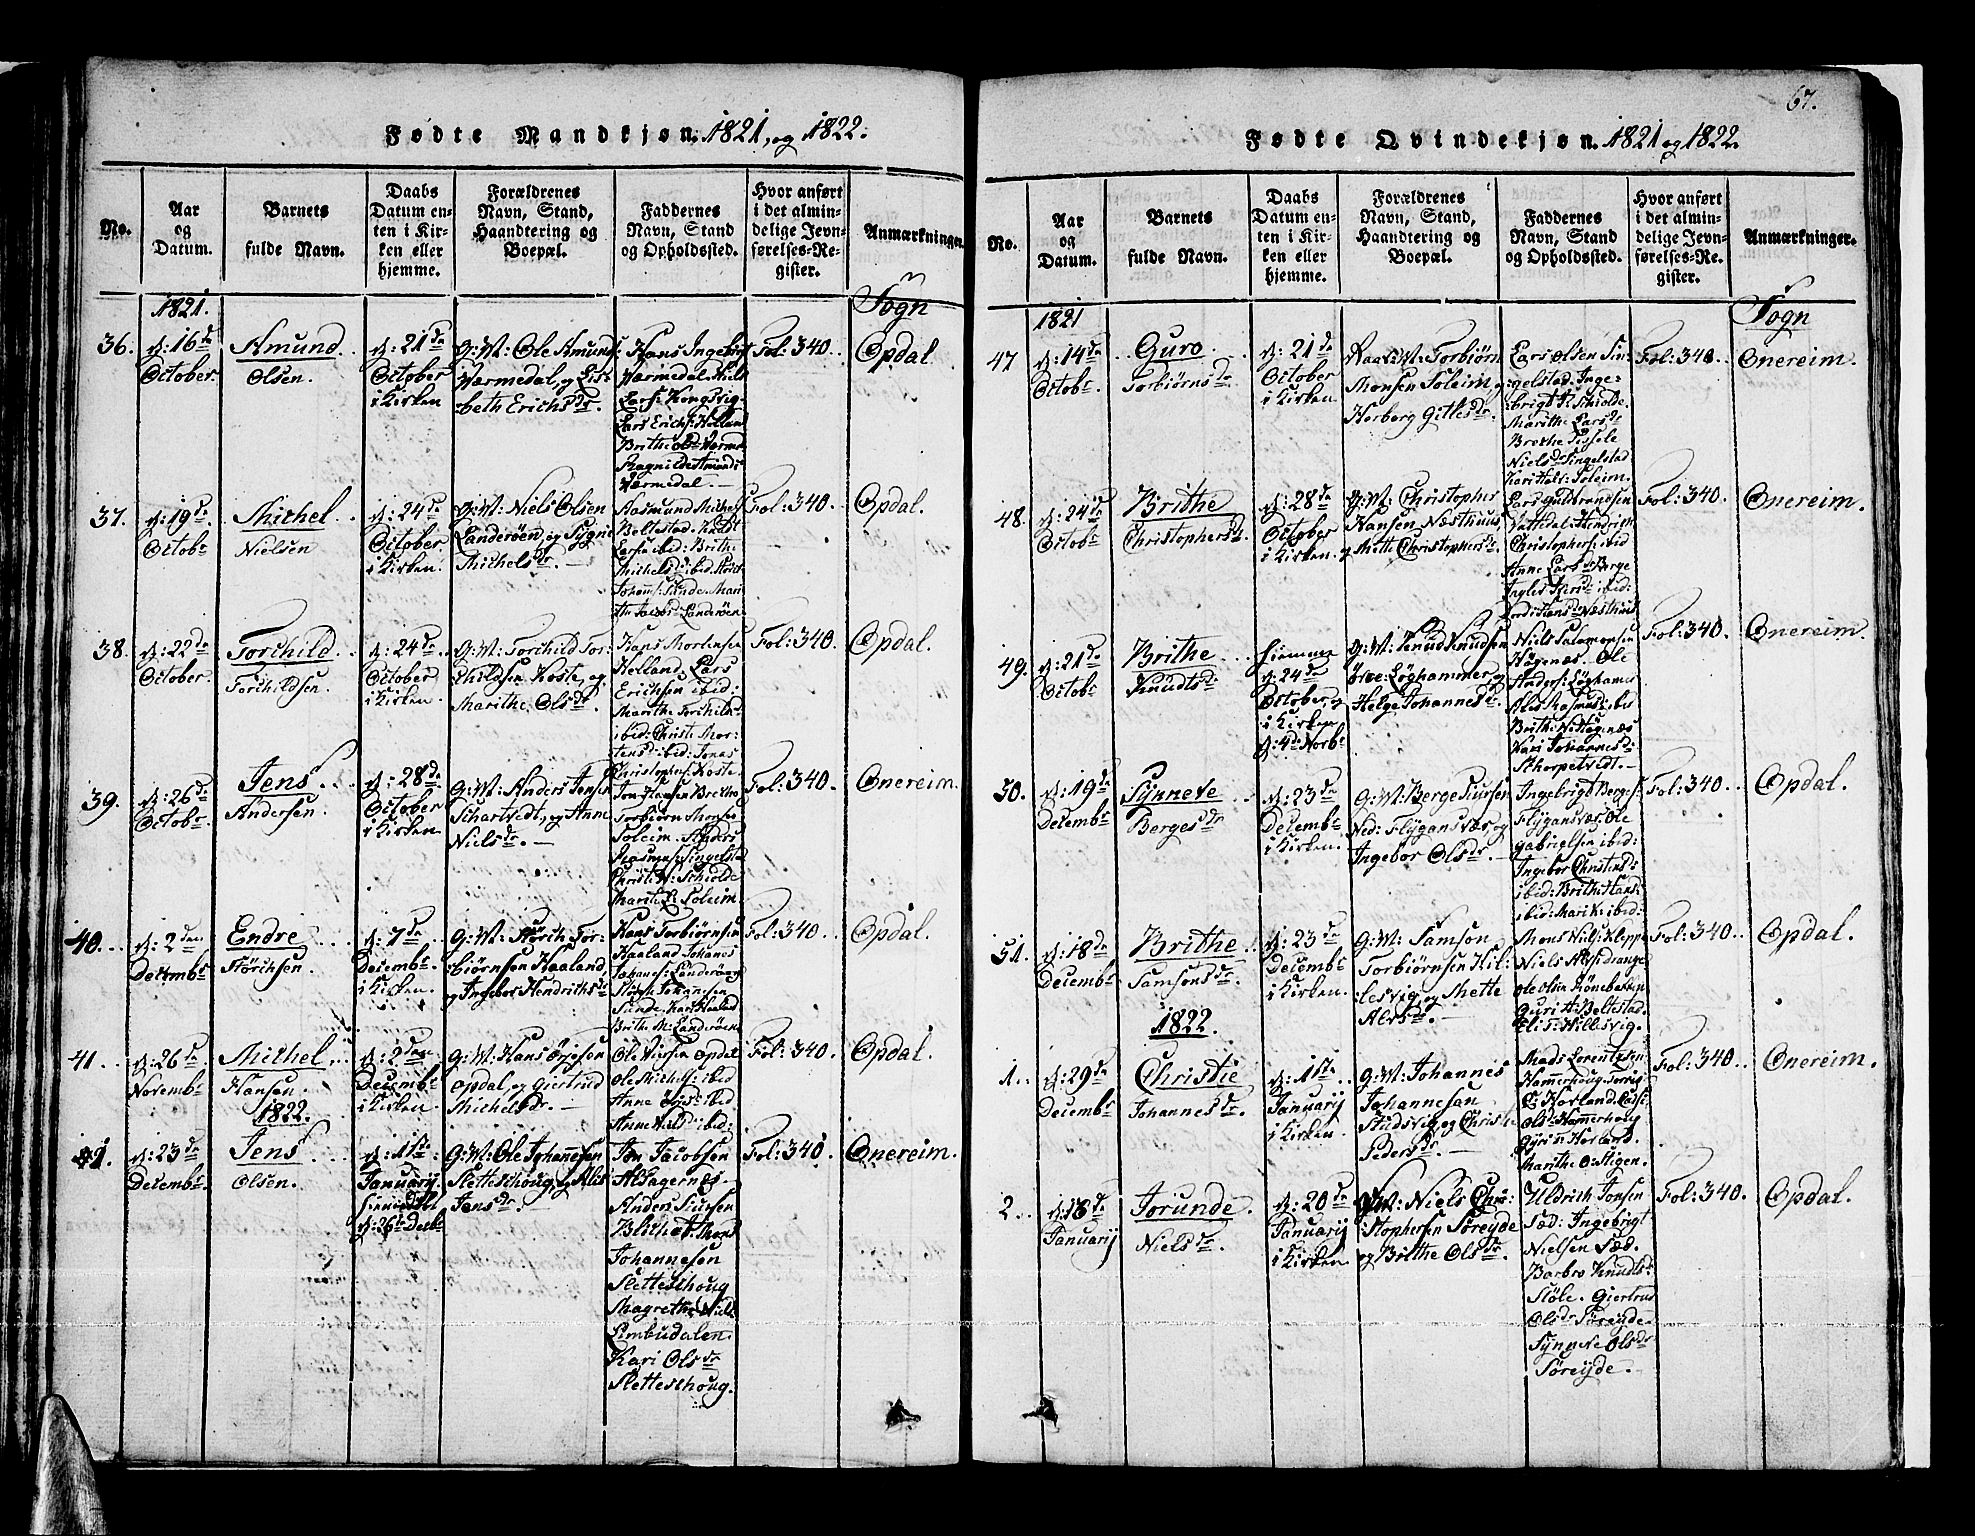 67.
Fødte Mandkjøn. 1821, og 1822.
No.
Aar og Datum.
Barnets fulde Navn.
Daabs Datum enten i Kirken eller hjemme.
Forældrenes Navn, Stand, Haandtering og Boepæl.
Faddernes Navn, Stand og Opholdssted.
Hvor anført i det almindelige Jevnførelses-Register.
Anmærkninger.
1821.
Sogn
36.
d: 16de October.
Amund Olsen.
d: 21de October i Kirken
G: M: Ole Amunds: Wærmedal, og Lisbeth Erichsdr.
Hans Ingebr: Wærmedal. Niels Lars: Kongsvig. Lars Erichs: Helland Brithe Olsd: Værme Ragnilde Amunds: Wærmedal.
Fol: 340.
Opdal.
37.
d: 19de Octobr
Michel Nielsen
d: 24de October i Kirken.
G: M: Niels Olsen Landerøen, og Sygni Michelsdr.
Rasmund Michels: Beltestad. Lars: ibid: Brithe Michelsd: ibid. Johans: Sunde. Marithe Jacobsd: Landerøen
Fol: 340
Opdal.
38.
d: 22de October
Torchild Torchildsen.
d: 24de October i Kirken.
G: M: Torchild Torchildsen Koste, og Marithe Olsdr
Hans Mortensen Helland. Lars Erichsen ibid: Marithe Torchilds: ibid: Christi Mortensd: ibid: Jonas Christophers: Koste
Fol: 340
Opdal.
39.
d: 26de Octobr
Jens Andersen
d: 28de October i Kirken
G: M: Anders Jensen Schartvedt, og Anne Nielsdr.
Jon Hansen Brethe Torbiørn Monsen Soleim. Rasmus: Singelsta Christi N: Schiolde Marite L: Soleim.
Fol: 340.
Onereim.
40.
d: 2den Decembr
Endre Størchsen.
d: 7de Decembr i Kirken.
G: M: Størch Torbiørnsen Haaland, og Ingebor Hendrichsdr
Hans Torbiørnsen Haaland Johanes Johanes: Landerøen Størch Johansen Sunde. Kari Haaland Brithe M: Landerøen
Fol: 340
Opdal.
41.
d: 26de Novembr
Michel Hansen
d: 2den Decembr i Kirken.
G: M: Hans Ørjesen Opdal, og Giertrud Michelsdr.
Ole Siursen Opdal Ole Michels: ibid Anne ibid Anne Nilsd: ibid:
Fol: 340.
Opdal.
1822.
1.
d: 23de Decembr.
Jens Olsen.
d: 1ste Januarij d: 26de Decbr
G: M: Ole Johannesen Sletteschoug, og Alis Jensdr.
Jon Jacobsen Aldagernes Anders Siursen Blithe T: Mons Johannesen Sletteschoug Magrethe Niels: Limbudalen. Kari Olsdr Sletteschoug.
Fol: 340.
Onereim.
Fødte Qvindekjøn. 1821 og 1822.
No.
Aar og Datum.
Barnets fulde Navn.
Daabs Datum enten i Kirken eller hjemme.
Forældrenes Navn, Stand, Haandtering og Boepæl.
Faddernes Navn, Stand og Opholdssted.
Hvor anført i det almindelige Jevnførelses-Register.
Anmærkninger.
1821
Sogn
47
d: 14de Octobr.
Guro Torbiørnsdr
d: 21de October i Kirken
Torbiørn Monsen Soleim, og Herborg Gitlesdr.
Lars Olsen Singelstad. Ingebrigt R: Schiolde. Marithe Larsdr Brethe Sissele Nielsdr Singelstad Kari Soleim.
Fol: 340
Onereim.
48.
d: 24de Octobr
Brithe Christophersdr.
d: 28de October i Kirken.
G: M: Christopher Hansen Næsthuus, og Mette Christophersdr
Lars Guldbrandsen Vattedal. Hendrich Christophers: ibid Anne Larsdr Berge ibid: Næsthuus
Fol: 340.
Onereim.
49.
d: 21de Octobr
Brithe Knudtsdr
hiemme d: 24de October, og i Kirken d: 4de Novbr
G: M: Knud Knudsen øvre Løghammer, og Helge Johannesdr
Niels Salomonsen Høgenæs. Ole Anders: Løghamer Alis Rasmusd: ibid Brithe N: Høgenæs Kari Johannesd: Thorpetvedt.
Fol: 340.
Onereim.
50.
d: 19de Decembr
Synneve Bergesdr
d: 23de Decembr i Kirken.
G: M: Berge Siursen Ned: Flygansvær, og Ingebor Olsdr.
Ingebrigt Berges: Flygansvær. Ole Gabrielsen ibid: Ingebor Christensd: ibid: Brithe Hans: ibid: Mari K: ibid:
Fol: 340.
Opdal.
51.
d: 18de Decembr
Brithe Samsonsdr.
d: 23de Decembr i Kirken.
G: M: Samson Torbiørnsen Hillesvig, og Mette Alvsdr.
Mons Niels: Kleppe Niels Alfs: Drange Ole Olsen Rønebakken Guri H: Beltestad. Eli T: Hillesvig.
Fol: 340.
Opdal.
1822.
1.
d: 29de Decembr
Christie Johannesdr.
d: 1ste Januarij i Kirken.
G: M: Johannes Johannesen Studsvig, og Christi Pedersdr.
Mads Lorentzsen Hammerhoug. E: Horland. Lassi Olsd: Hamerhoug Gyri N: Horland. Marithe O: Stigen.
Fol: 340.
Onereim.
2.
d: 18de Januarij
Jorunde Nielsdr.
d: 20de Januarij i Kirken
G: M: Niels Christophersen Søreyde og Brithe Olsdr.
Uldrich Jonsen Sæd: Ingebrigt Nielsen Sæd. Barbro Knudtsd: Støle. Giertrud Olsdr Søreyde. Synneve Olsdr Søreyde.
Fol: 340.
Opdal.